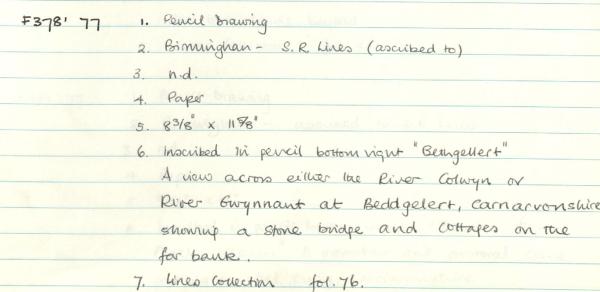 F378' 77 1. Pencil Drawing
2. Birmingham - S.R. Lines (ascribed to)
3. n.d.
4. Paper
5. 8 3/8" x 11 5/8"
6. Inscribed in pencil bottom right "Bethgellert"
A view across either the River Colwyn or
River Gwynnant at Beddgelert, Carnarvonshire
showing a stone bridge and cottages on the
far bank.
7. Lines Collection fol. 76.